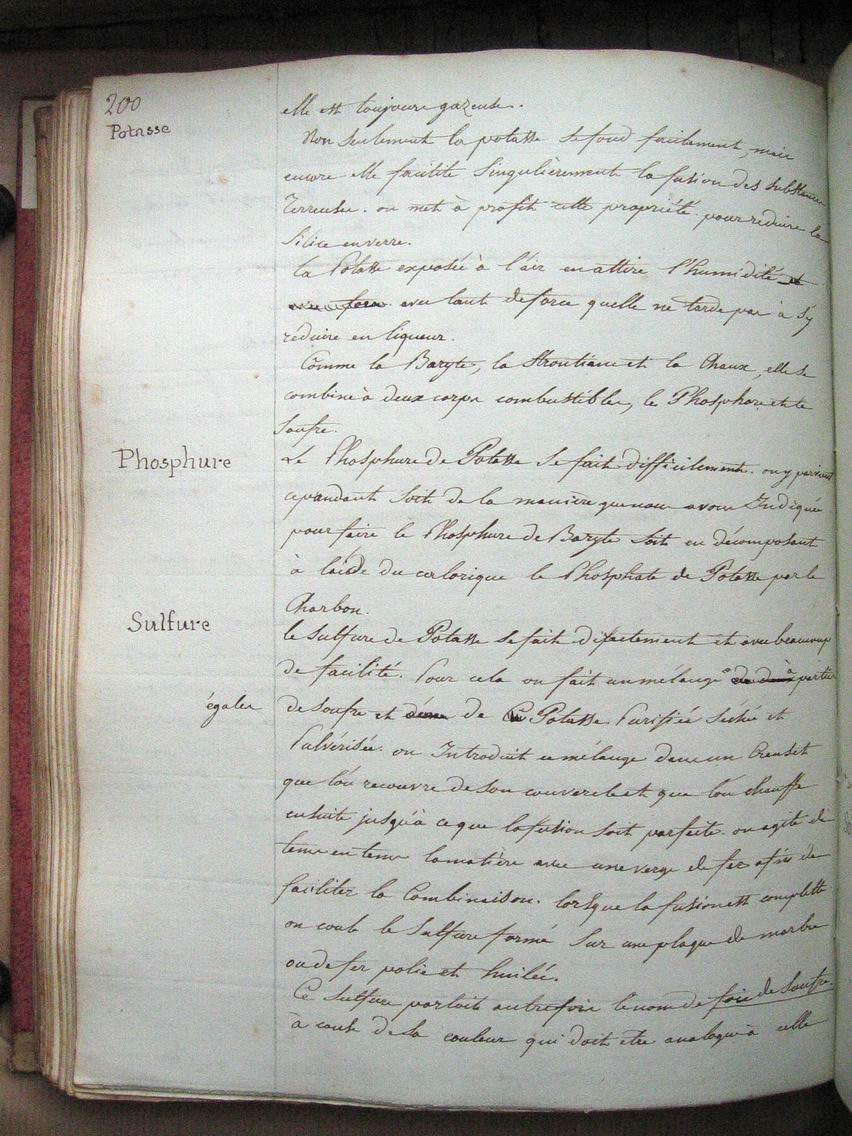 200
Potasse
elle est toujours gazeuse.
Non seulement la potasse se fond facilement, mais
encore elle facilite singulièrement la fusion des substances
Terreuses. on met à profit cette propriété pour reduire la
Silice en verre.
La Potasse exposée à l'air en attire l'humidité et
avec force avec tant de force quelle ne tarde pas à s'y
reduire en liqueur.
Comme la Baryte, la Strontiane et la Chaux, elle se
combine à deux corps combustibles, le Phosphore et le
Soufre.
Phosphure
Le Phosphure de Potasse se fait difficilement. on y parvient
cependant soit de la manière que nous avons Indiquée
pour faire le Phosphure de Baryte soit en décomposant
à laide du calorique le Phosphate de Potasse par le
Charbon.
Sulfure
le Sulfure de Potasse se fait directement et avec beaucoup
de facilité. Pour cela on fait un mélange à parties
égales
de soufre et de Potasse Purifiée séchée et
Pulvérisée. on Introduit ce mélange dans un Creuset
que l'on recouvre de son couvercle et que l'on chauffe
ensuite jusqu'à ce que la fusion soit parfaite. on agite de
tems en tems la matière avec une verge de fer afin de
faciliter la Combinaison. lorsque la fusion est complette
on coule le Sulfure formé sur une plaque de marbre
ou de fer polie et huilée.
Ce Sulfure portait autrefois le nom de foie de Soufre.
à cause de sa couleur qui doit etre analogue à celle